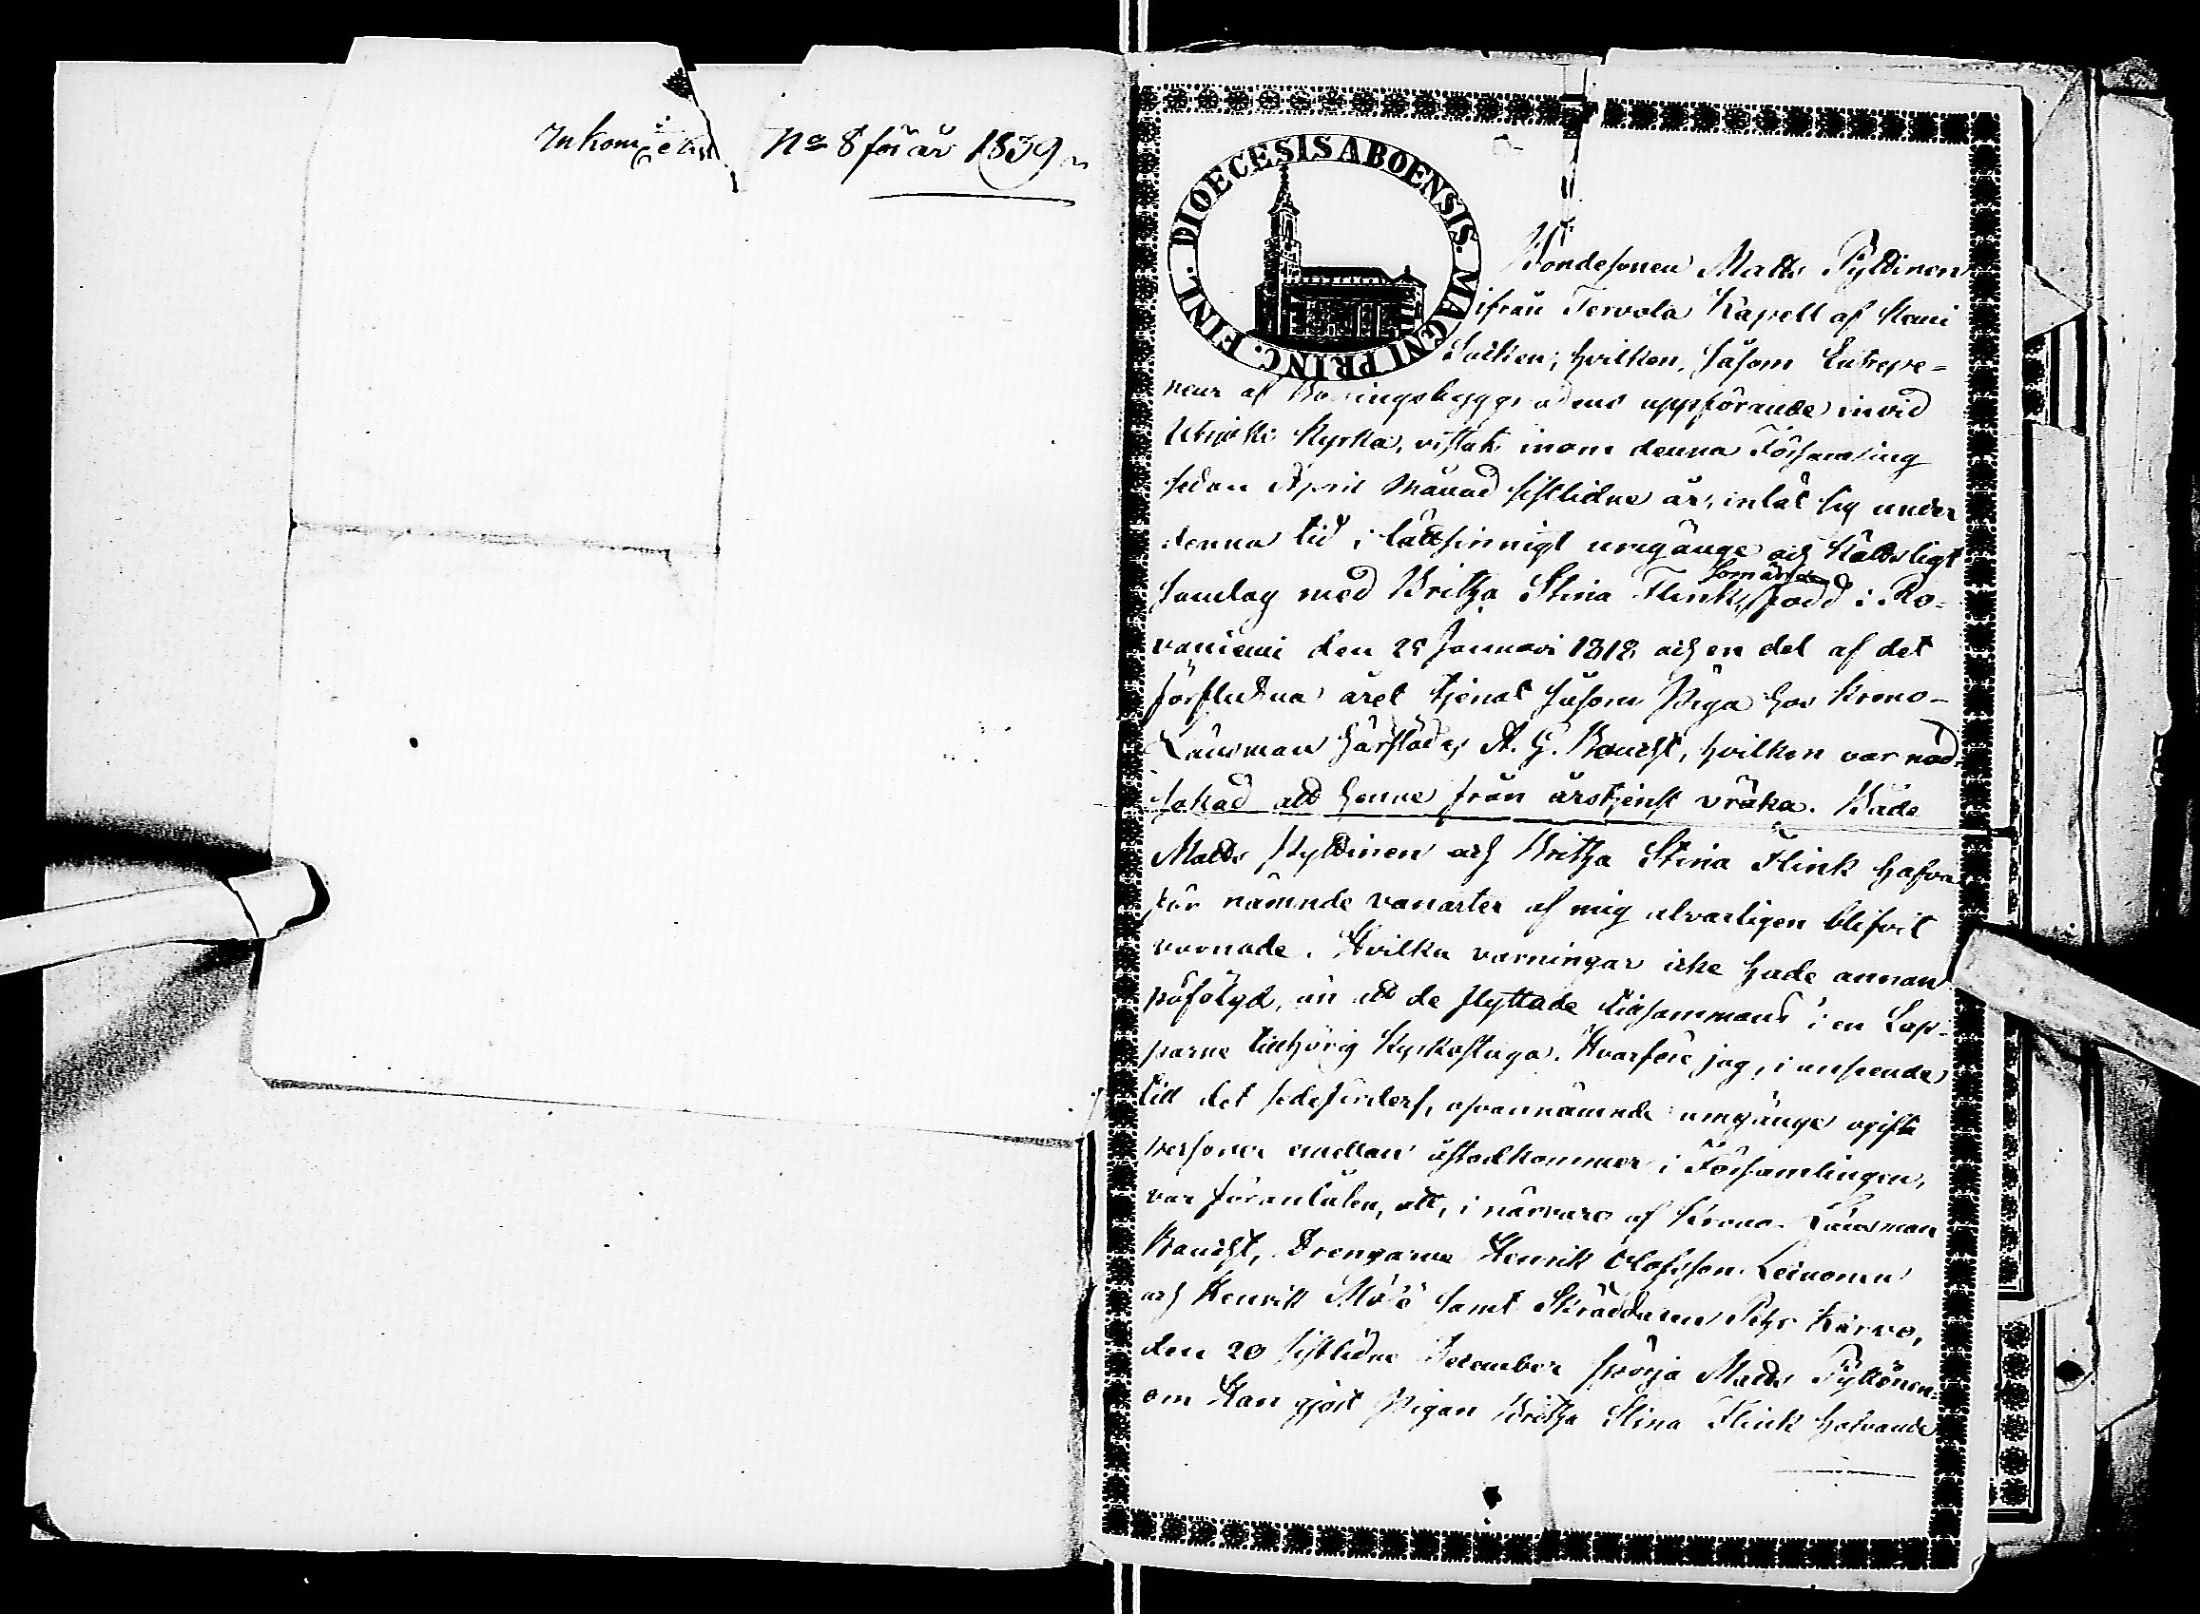 No 8 för år 1839
DIOECESIS ABOENSIS. MAGNI PRINC. FINL.
Bondesonen Matts Pyttinen
ifrån Tervola Kapell af Kemi
Socken; hvilken, såsom Entrepe=
neur af Boningsbyggnadens uppförande invid
Utsjoki Kyrka, vistats inom denna Församling
sedan April Månad sistlidne år, inlät sig under
denna tid i lättsinnigt umgänge och köttsligt
Samlag med Britha Stina Flink, som är född i Ro-
vaniemi den 25 Januari 1818 och en del af det
förflutna året tjenat såsom Piga hos Krono-
Länsman härstädes A. G. Boucht, hvilken var nöd-
sakad att henne från årstjenst vräka. Både
Matts Pyttinen och Britha Stina Flink hafva
för nämnde vanarter af mig alvarligen blifvit
varnade. Hvilka varningar icke hade annan
påföljd, än att de flyttade tillsammans i en Lap-
parne tillhörig Kyrkostuga. Hvarföre jag, i anseende
till det sedeförderf, ofvannämnde umgänge ogifta
personer emellan åstadkommer i Församlingen,
var föranlåten, att, i närvaro af Krono-Länsman
Boucht, Drengarne Henrik Olofsson Leinonen
och Henrik samt Skräddaren Pehr Karvo,
den 20 sistlidne December spörja Matts Pyttönen
om Han gjort Pigan Britha Stina Flink hafvande